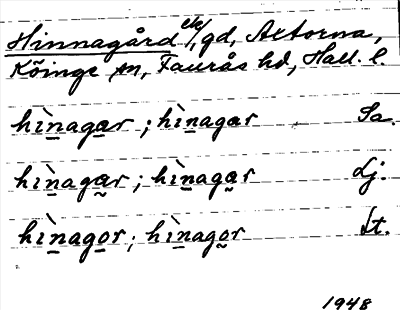 Hinnagård, gd, Axtorna,
Köinge sn, Faurås hd, Hall. l.
hìnagar ; hìnagar Sa.
hìnagar ; hìnagar Lj.
hìnagor ; hìnagor Lt.
1948